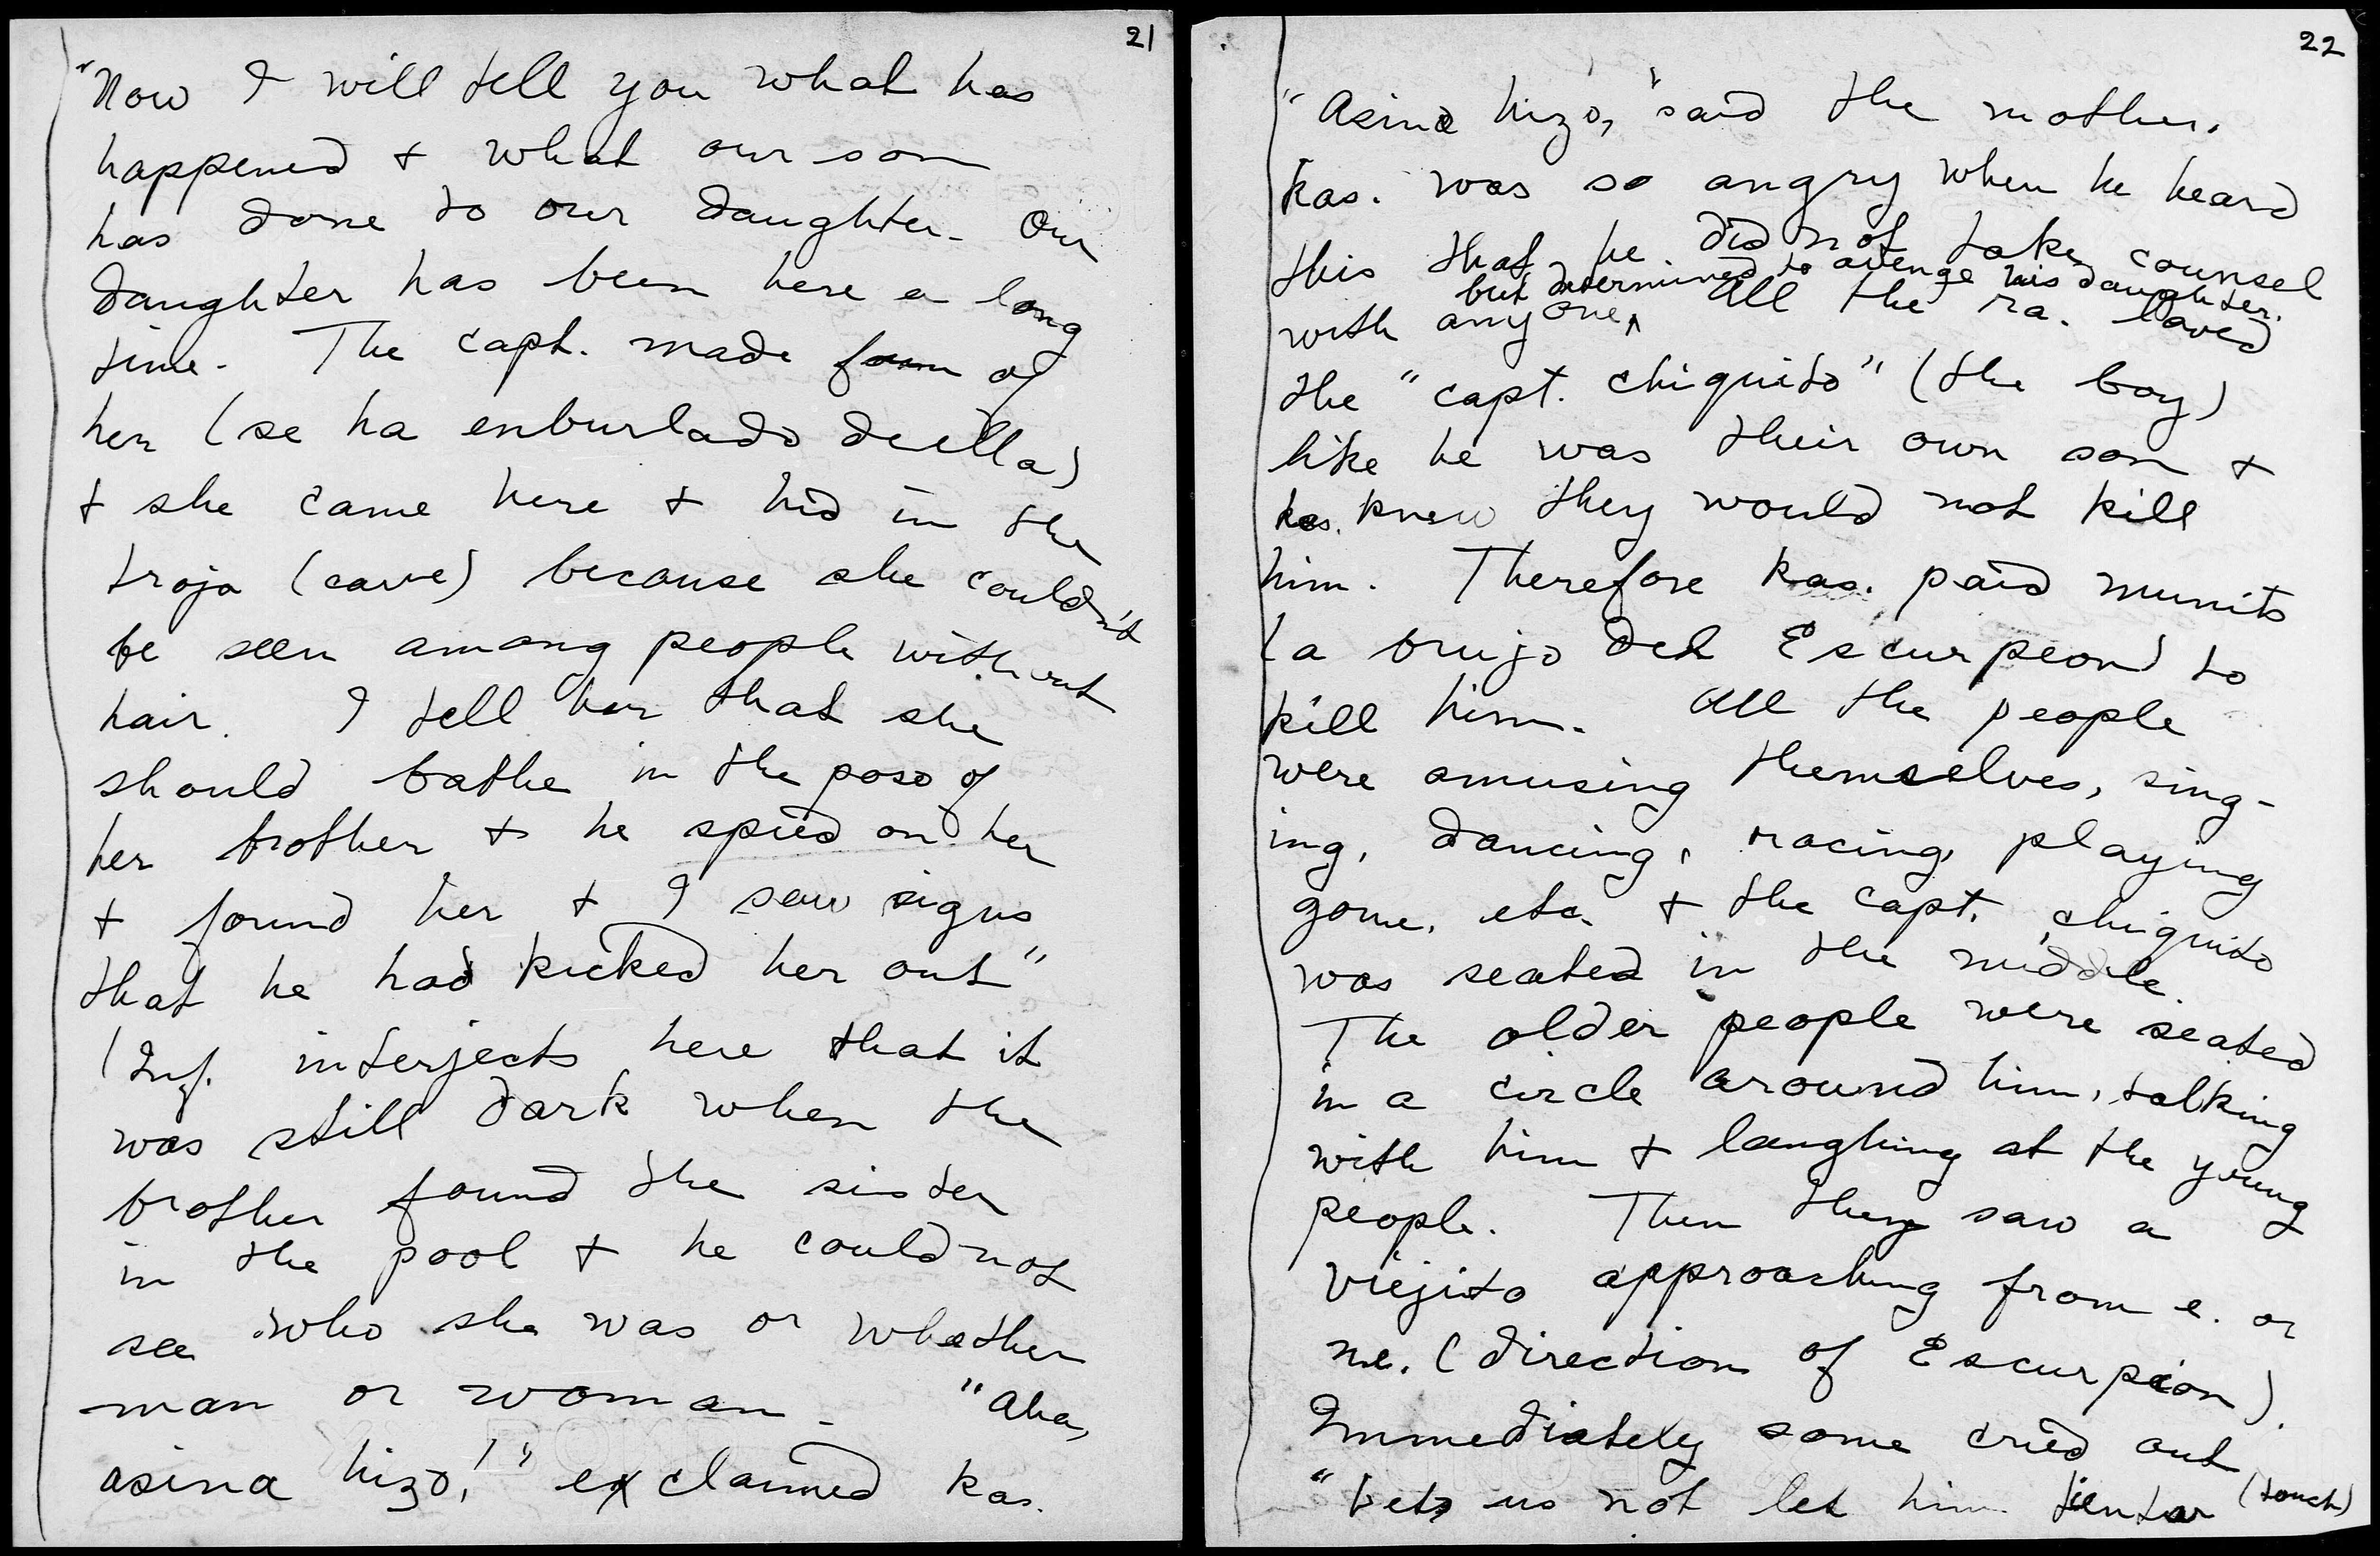 21
"Now I will tell you what has
happened + what our son
has done to our daughter. Our
daughter has been here a long
time. The capt. made of
her (se ha enburlado de ella)
+ she came here + hid in the
troja (cave) because she couldn't
be seen among people without
hair. I tell her that she
should bathe in the poso of
her brother + he spied on her
+ found her + I saw signs
that he had kicked her out"
(Inf. interjects here that it
was still dark when the
brother found the sister
in the pool + he could not
see who she was or whether
man or woman. "Aha,
asina hizo!" exclaimed kas.
22
"Asina hizo," said the mother.
kas. was so angry when he heard
this that he did not take counsel
but determined to avenge his daughter.
with anyone. All the ra. loved
the "capt. chiquito" (the boy)
like he was their own son +
kas. knew they would not kill
him. Therefore kas. paid munits
(a brujo del Escurpeon) to
kill him. All the people
were amusing themselves, sing-
ing, dancing, racing, playing
gome, etc. + the capt. chiquito
was seated in the middle.
The older people were seated
in a circle around him, talking
with him + laughing at the young
people. Then they saw a
viejito approaching from e. or
ne. (direction of Escurpion).
Immediately some cried out
"Lets us not let him tientar (touch)